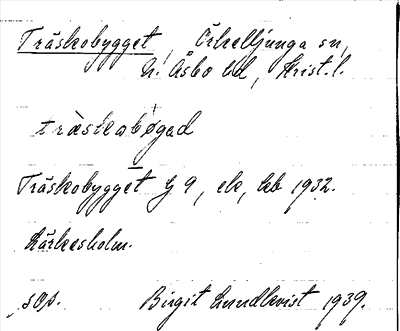 Träskobygget, Örkelljunga sn,
N. Åsbo hd, Krist. l.
träskabøgad
Träskobygget Gg 9, ek, kb 1932.
Lärkesholm.
sOp. Birgit Lundkvist 1939.